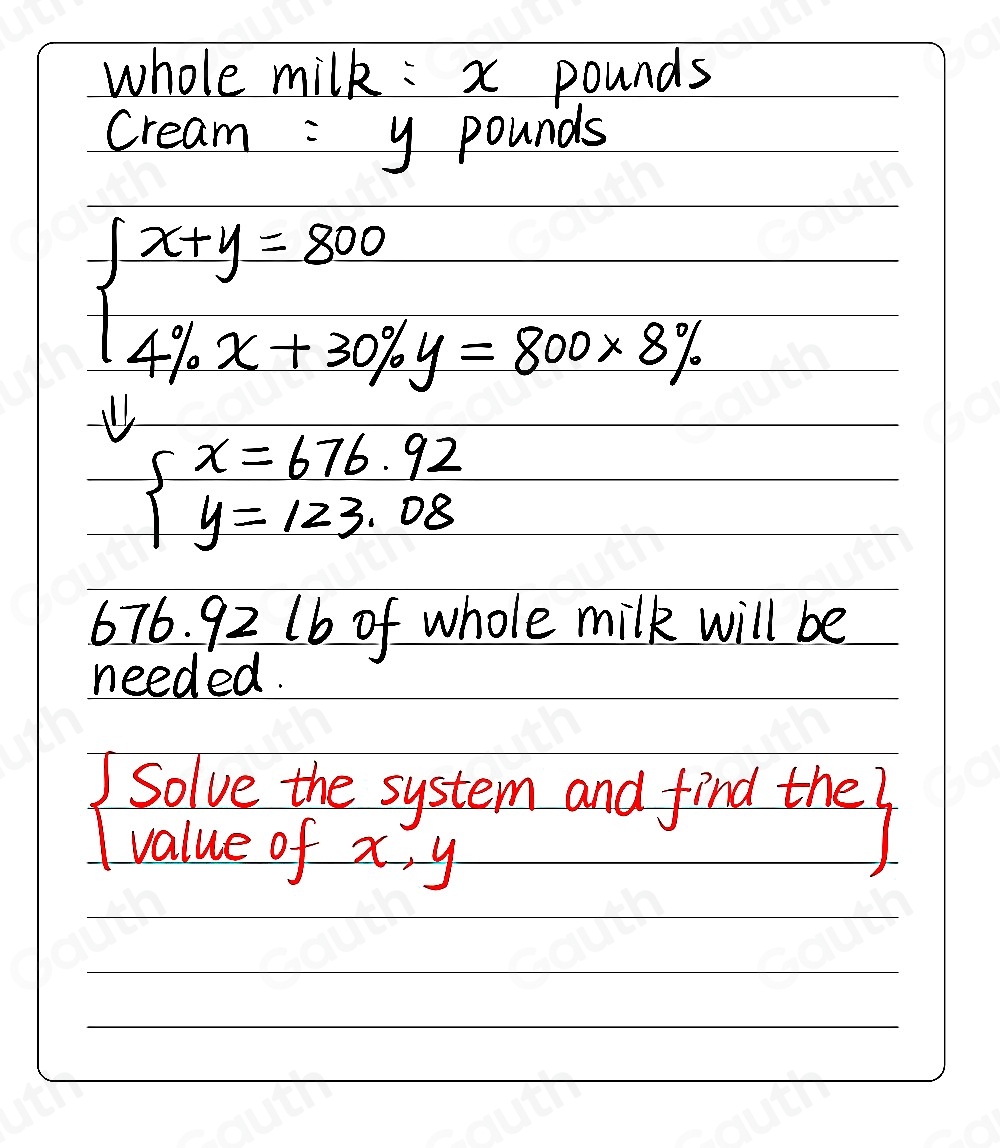 whole milk : x pounds
Cream : y pounds
x+y = 800
4% x + 30% y = 800 × 8%
⇓
x = 676.92
y = 123.08
676.92 lb of whole milk will be
needed.
{Solve the system and find the}
value of x, y